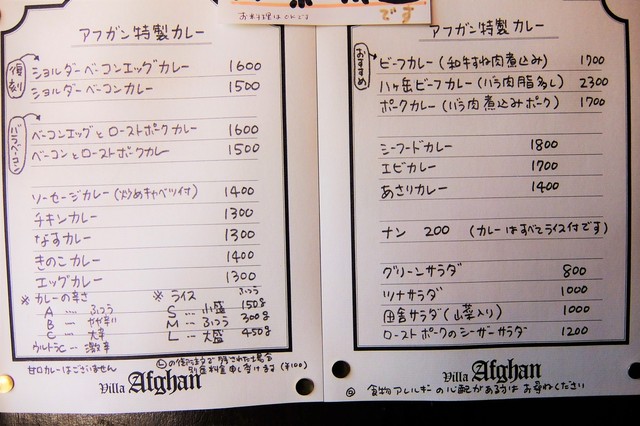 お米料理はOKです
です
アフガン特製カレー
復刻
ショルダーベーコンエッグカレー 1600
ショルダーベーコンカレー 1500
ベーコンエッグとローストポークカレー 1600
ベーコンとローストポークカレー 1500
ソーセージカレー(炒めキャベツ付) 1400
チキンカレー 1300
なすカレー 1300
きのこカレー 1400
エッグカレー 1300
※ カレーの辛さ
A …… ふつう
B …… やや辛い
C …… 大辛
ウルトラC …… 激辛
甘口カレーはございません
※ ライス ふつう
S … 小盛 150g
M … ふつう 300g
L … 大盛 450g
別途料金申し受けます(¥100)
Villa Afghan
アフガン特製カレー
おすすめ
ビーフカレー(和牛すね肉煮込み) 1700
八ヶ岳ビーフカレー(バラ肉脂多し) 2300
ポークカレー(バラ肉煮込みポーク) 1700
シーフードカレー 1800
エビカレー 1700
あさりカレー 1400
ナン 200 (カレーはすべてライス付です)
グリーンサラダ 800
ツナサラダ 1000
田舎サラダ(山菜入り) 1000
ローストポークのシーザーサラダ 1200
Villa Afghan
◎ 食物アレルギーの心配がある方はお尋ねください